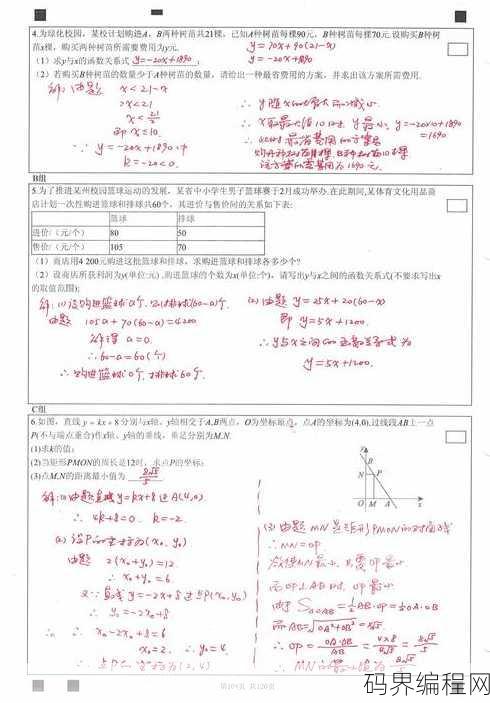 4.为绿化校园，某校计划购进A、B两种树苗共21棵，已知A种树苗每棵90元，B种树苗每棵70元.设购买B种树
苗x棵，购买两种树苗所需要费用为y元.
y=70x+90(21-x)
y=-20x+1890
(1) 求y与x的函数关系式 y=-20x+1890 ;
(2) 若购买B种树苗的数量少于A种树苗的数量，请给出一种最省费用的方案，并求出该方案所需费用.
解: 由题 x<21-x
2x<21
x<21/2
即 x≤10
∴ y=-20x+1890中
k=-20<0
∴ y随x的增大而减小
∴ x取最大值10时 y最小, y=-20×10+1890
=1690
B组
5.为了推进某州校园篮球运动的发展，某省中小学生男子篮球赛于2月成功举办.在此期间,某体育文化用品商
店计划一次性购进篮球和排球共60个，其进价与售价间的关系如下表:
篮球 排球
进价/ (元/个) 80 50
售价/ (元/个) 105 70
(1) 商店用4 200元购进这批篮球和排球，求购进篮球和排球各多少个?
(2) 设商店所获利润为y(单位:元) ,购进篮球的个数为x(单位:个)，请写出y与x之间的函数关系式(不要求写出x
的取值范围);
解: (1) 设购进篮球a个, 则排球(60-a)个
由题 105a+70(60-a)=4200
解得 a=0
∴ 60-a=60(个)
∴ 购进篮球0个, 排球60个.
(2) 由题 y=25x+20(60-x)
即 y=5x+1200.
∴ y与x之间的函数关系式为
y=5x+1200.
C组
6.如图，直线 y = kx + 8 分别与x轴，y轴相交于A,B两点，O为坐标原点，点A的坐标为(4,0).过线段AB上一点
P(不与端点重合)作x轴、y轴的垂线，垂足分别为M,N.
(1)求k的值;
(2)当矩形PMON的周长是12时，求点P的坐标;
(3)点M,N的距离最小值为 8√5/5
y
B
N P
O M A x
解: (1) 由题直线y=kx+8过A(4,0)
∴ 4k+8=0. k=-2.
(2) 设P的坐标为(x₀, y₀)
由题 2(x₀+y₀)=12
∴ x₀+y₀=6
又∵ 直线y=-2x+8过点P(x₀, y₀)
∴ y₀=-2x₀+8
∴ x₀-2x₀+8=6
x₀=2. ∴ y₀=4
∴ 点P的坐标为(2, 4)
(3) 由题 MN是矩形PMON的对角线
∴ MN=OP
故使MN最小, 只需OP最小
而OP⊥AB时, OP最小
由于 S△OAB=½AB·OP=½OA·OB
而AB=√OA²+OB²=4√5.
∴ OP=OA·OB/AB=4×8/4√5=8√5/5
∴ MN的最小值为8√5/5
共120页
码界编程网